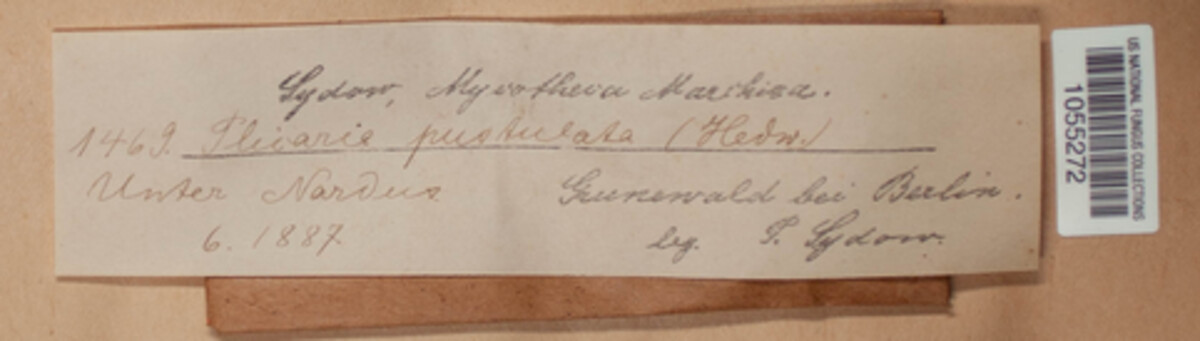 Sydow, Mycotheca Marchica.
1469. Plicaria pustulata (Hedw.)
Unter Nardus
Grunewald bei Berlin.
6. 1887
leg. P. Sydow.
US NATIONAL FUNGUS COLLECTIONS
1055272